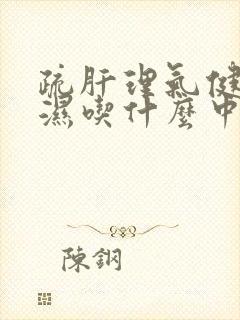 疏肝理氣健
濕喫什麼中
陳鋼